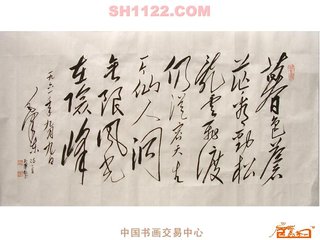 SH1122.COM
暮色苍
茫看劲松
乱云飞渡
仍从容天生
一个仙人洞
无限风光
在险峰
一九六一年九月九日
毛泽东
中国书画交易中心